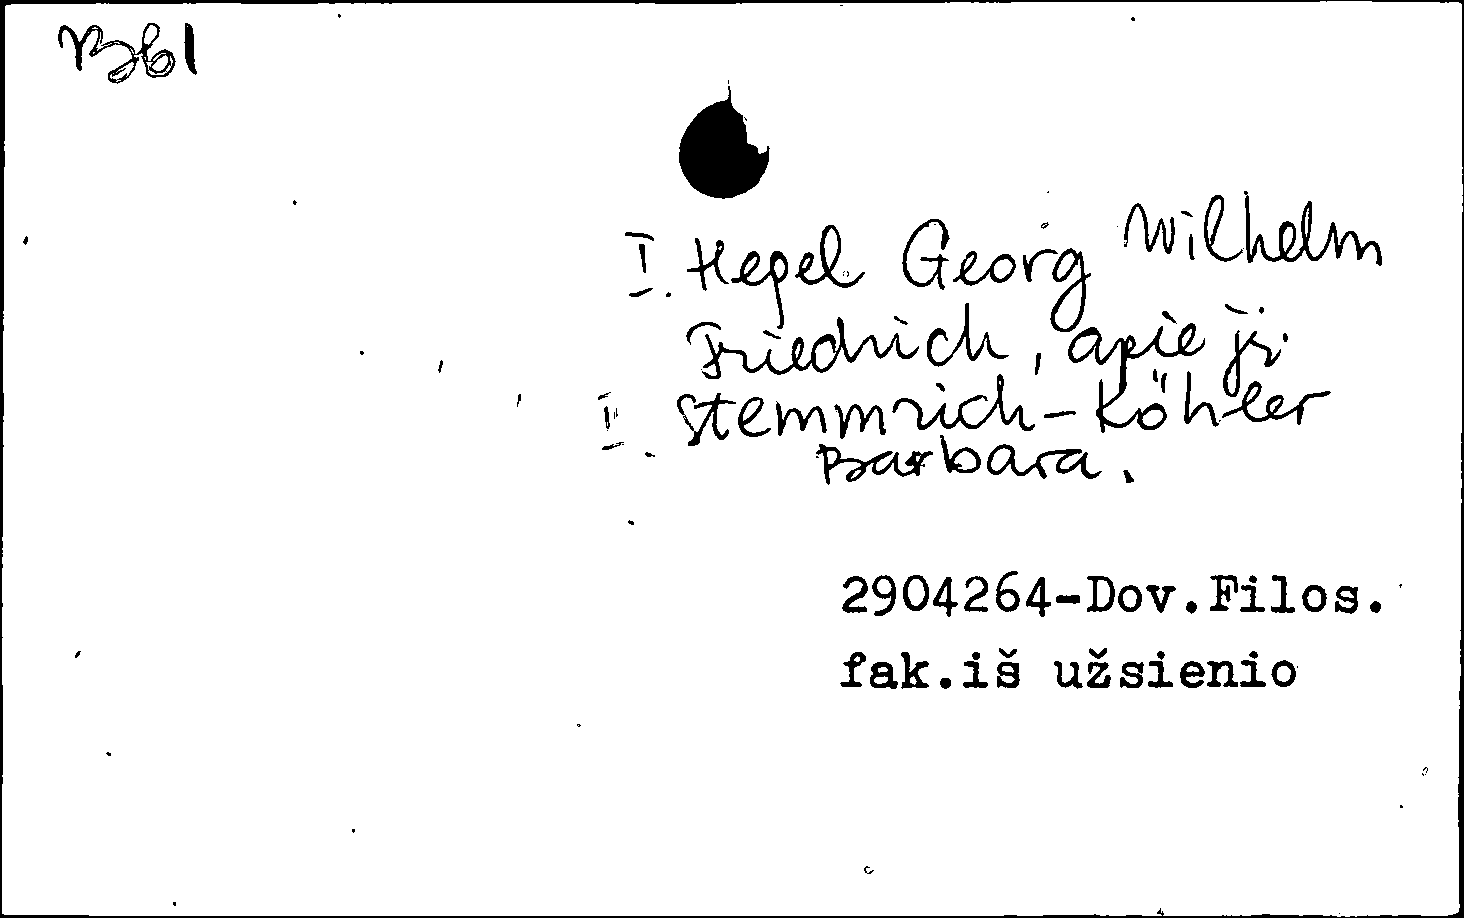 B61
I. Hegel Georg Wilhelm
Friedrich, apie jį.
II. Stemmrich-Köhler
Barbara.
2904264-Dov.Filos.
fak.iš užsienio